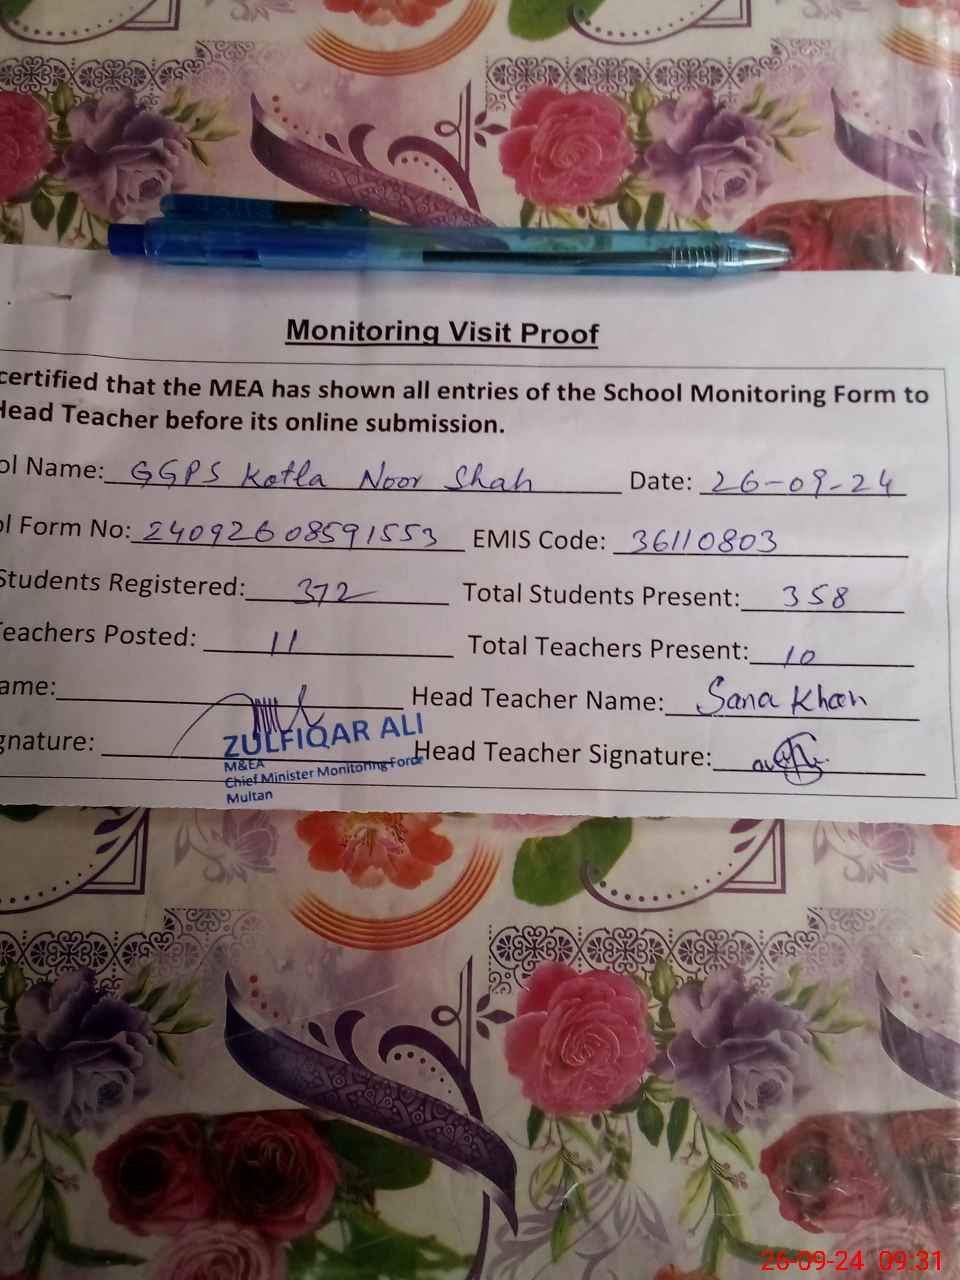 Monitoring Visit Proof
certified that the MEA has shown all entries of the School Monitoring Form to
Head Teacher before its online submission.
ol Name: GGPS Kotla Noor Shah Date: 26-09-24
ol Form No: 24092608591553 EMIS Code: 36110803
Students Registered: 372 Total Students Present: 358
Teachers Posted: 11 Total Teachers Present: 10
ame: Head Teacher Name: Sana Khan
gnature: Head Teacher Signature:
ZULFIQAR ALI
M&EA
Chief Minister Monitoring Force
Multan
26-09-24 09:31